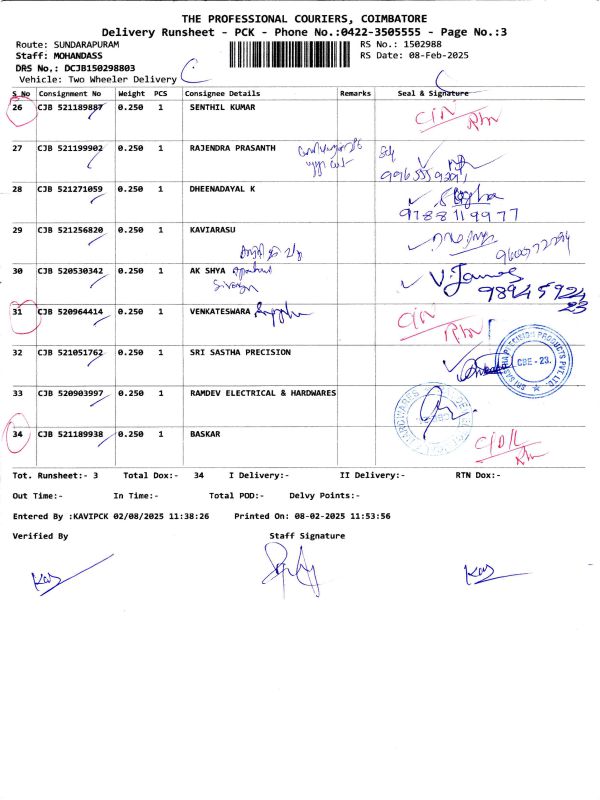 THE PROFESSIONAL COURIERS, COIMBATORE
Delivery Runsheet - PCK - Phone No.:0422-3505555 - Page No.:3
Route: SUNDARAPURAM RS No.: 1502988
Staff: MOHANDASS RS Date: 08-Feb-2025
DRS No.: DCJB150298803
Vehicle: Two Wheeler Delivery
S No Consignment No Weight PCS Consignee Details Remarks Seal & Signature
26 CJB 521189887 0.250 1 SENTHIL KUMAR
27 CJB 521199902 0.250 1 RAJENDRA PRASANTH
28 CJB 521271059 0.250 1 DHEENADAYAL K
9788119977
29 CJB 521256820 0.250 1 KAVIARASU
30 CJB 520530342 0.250 1 AK SHYA
V. James
31 CJB 520964414 0.250 1 VENKATESWARA
32 CJB 521051762 0.250 1 SRI SASTHA PRECISION
SRI SASTHA PRECISION PRODUCTS PVT. LTD.
CBE - 23.
33 CJB 520903997 0.250 1 RAMDEV ELECTRICAL & HARDWARES
34 CJB 521189938 0.250 1 BASKAR
Tot. Runsheet:- 3 Total Dox:- 34 I Delivery:- II Delivery:- RTN Dox:-
Out Time:- In Time:- Total POD:- Delvy Points:-
Entered By :KAVIPCK 02/08/2025 11:38:26 Printed On: 08-02-2025 11:53:56
Verified By Staff Signature